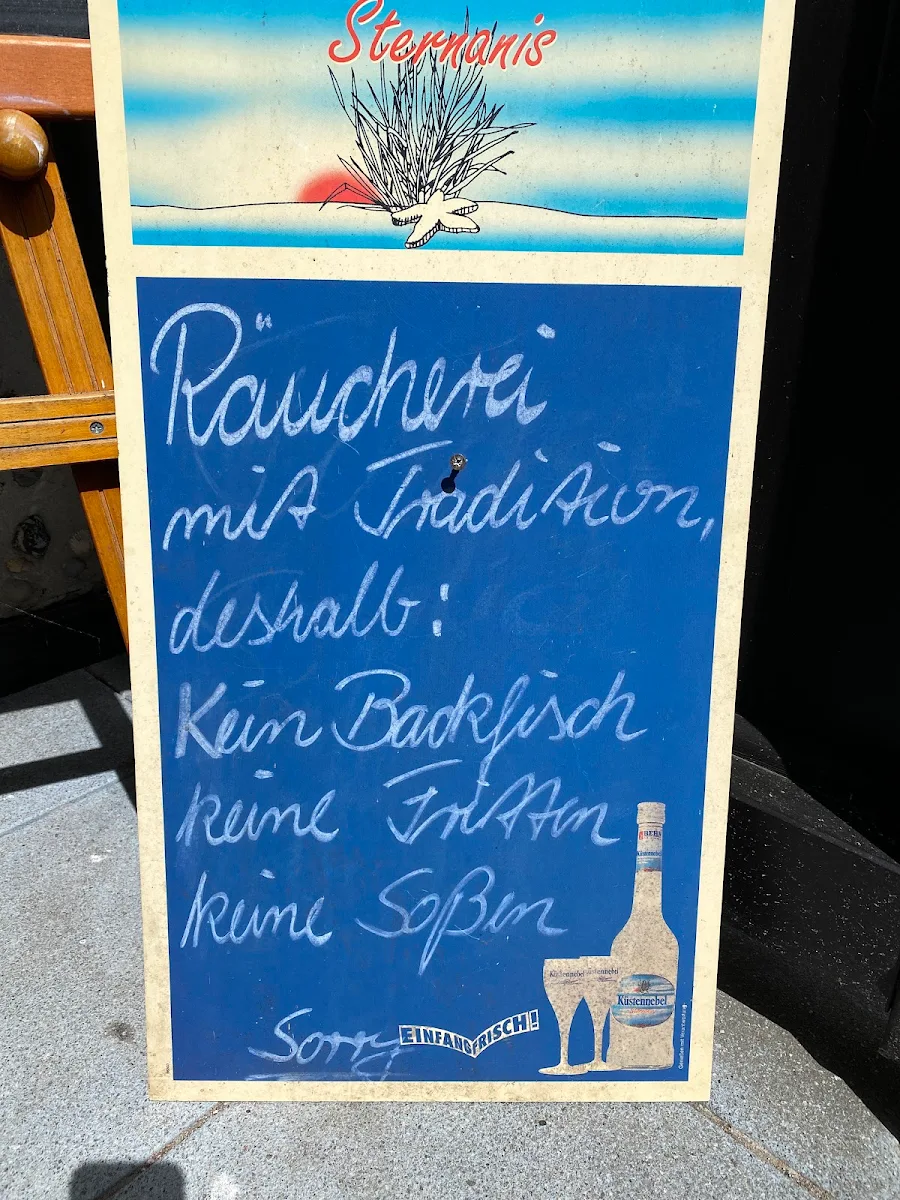 Sternanis
Räucherei
mit Tradition,
deshalb:
Kein Backfisch
keine Fritten
keine Soßen
Sorry
EINFANGFRISCH!
Küstennebel
Küstennebel
Küstennebel
Küstennebel